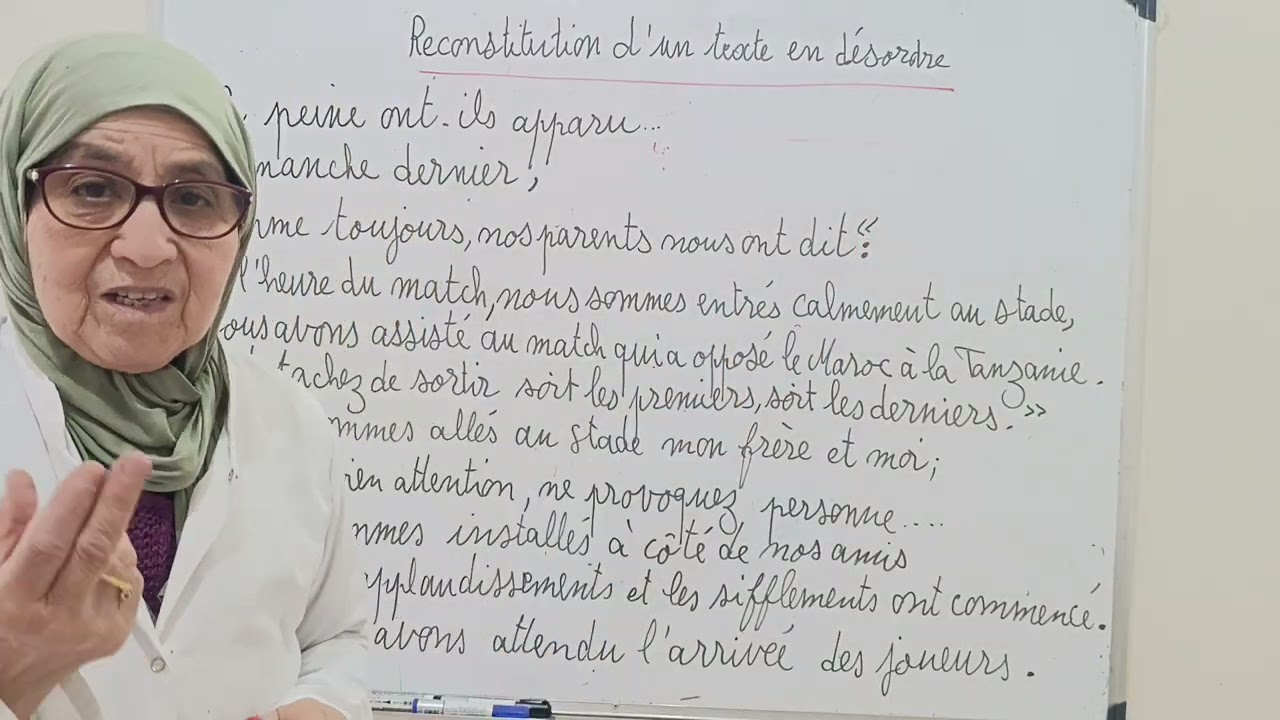 Reconstitution d'un texte en désordre
peine ont-ils apparu...
manche dernier,
mme toujours, nos parents nous ont dit «:
l'heure du match, nous sommes entrés calmement au stade,
ous avons assisté au match qui a opposé le Maroc à la Tanzanie.
tachez de sortir soit les premiers, soit les derniers.»
mmes allés au stade mon frère et moi;
ien attention, ne provoquez personne....
mmes installés à côté de nos amis
pplaudissements et les sifflements ont commencé.
avons attendu l'arrivée des joueurs.